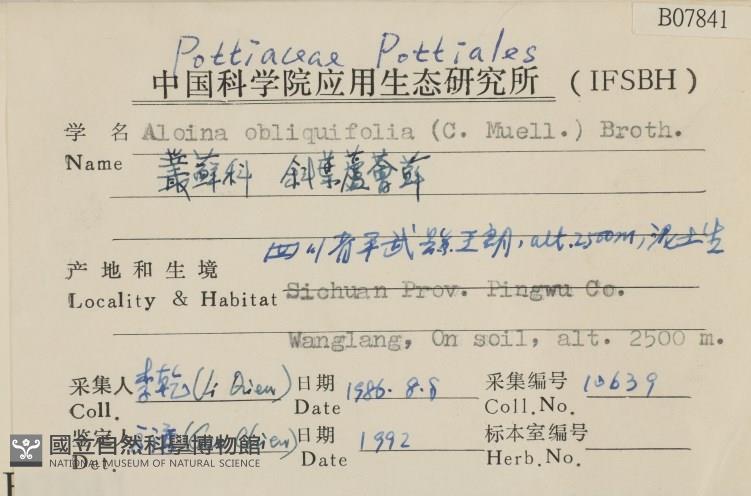 B07841
Pottiaceae Pottiales
中国科学院应用生态研究所 (IFSBH)
学名 Aloina obliquifolia (C. Muell.) Broth.
Name 叢蘚科 斜葉蘆薈蘚
四川省平武縣王朗, alt. 2500m, 泥土生
产地和生境
Locality & Habitat Sichuan Prov. Pingwu Co.
Wanglang, On soil, alt. 2500 m.
采集人 李乾 (Li Qien) 日期 1986.8.8 采集编号 10639
Coll. Date Coll.No.
鉴定人 日期 1992 标本室编号
Det. Date Herb.No.
國立自然科學博物館
NATIONAL MUSEUM OF NATURAL SCIENCE